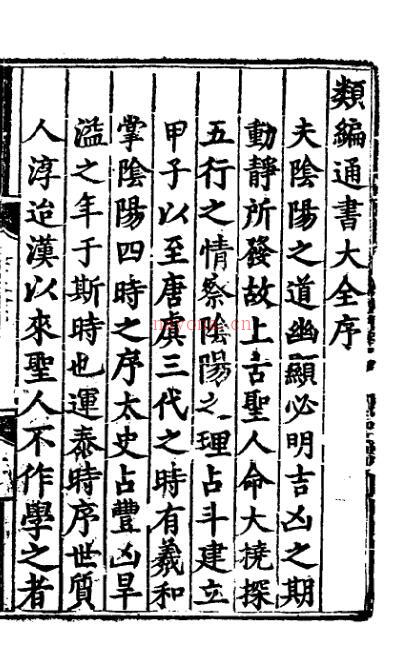 類編通書大全序
夫陰陽之道幽顯必明吉凶之期
動靜所發故上古聖人命大撓探
五行之情察陰陽之理占斗建立
甲子以至唐虞三代之時有羲和
掌陰陽四時之序太史占豐凶旱
溢之年于斯時也運泰時序世質
人淳迨漢以來聖人不作學之者
nayona.cn